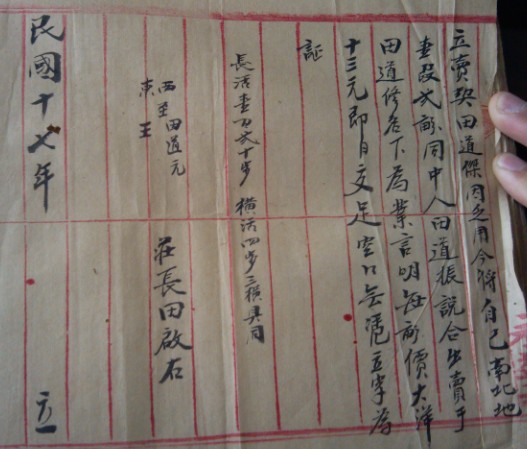 立賣契田道傑因乏用今將自己南北地
壹段弍畝同中人田道振說合出賣于
田道修名下為業言明每畝價大洋
十三元即日交足空口無憑立字為
証
長活壹百弍十步 橫活四步三橫共同
西至田道元
東 王
莊長田啟右
民國十七年